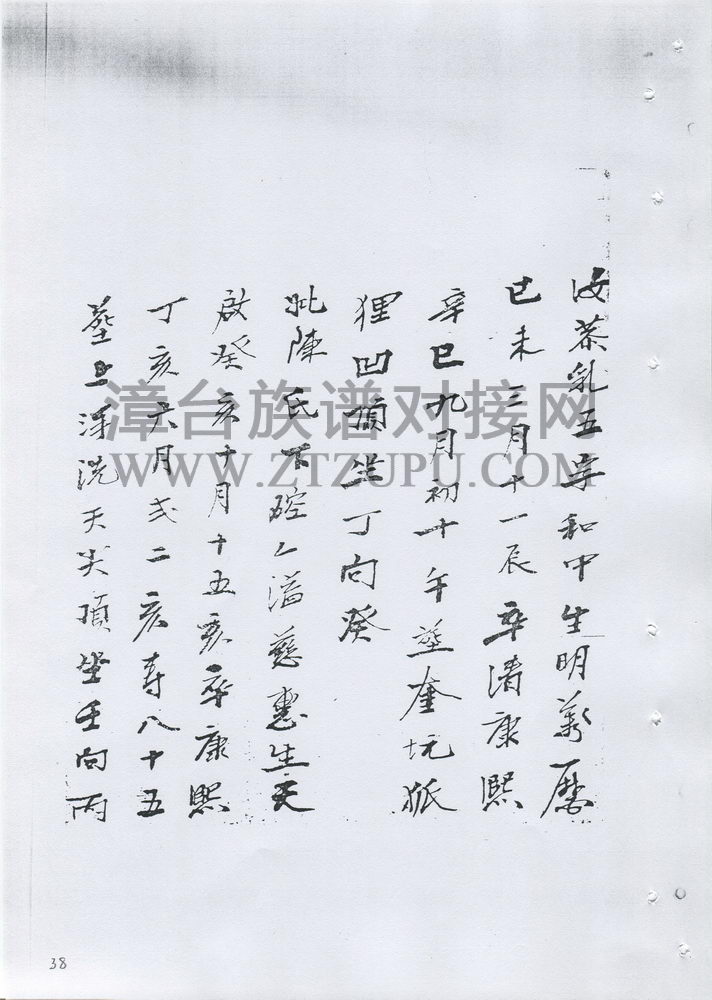 汝恭乳五字和中生明萬曆
己未三月十一辰卒清康熙
辛巳九月初十午塟奎坑狐
狸凹頂坐丁向癸
妣陳氏下硿人謚慈惠生天
啟癸亥十月十五亥卒康熙
丁亥六月弍二亥寿八十五
塟上洋洗天尖頂坐壬向丙
漳台族谱对接网
WWW.ZTZUPU.COM
38